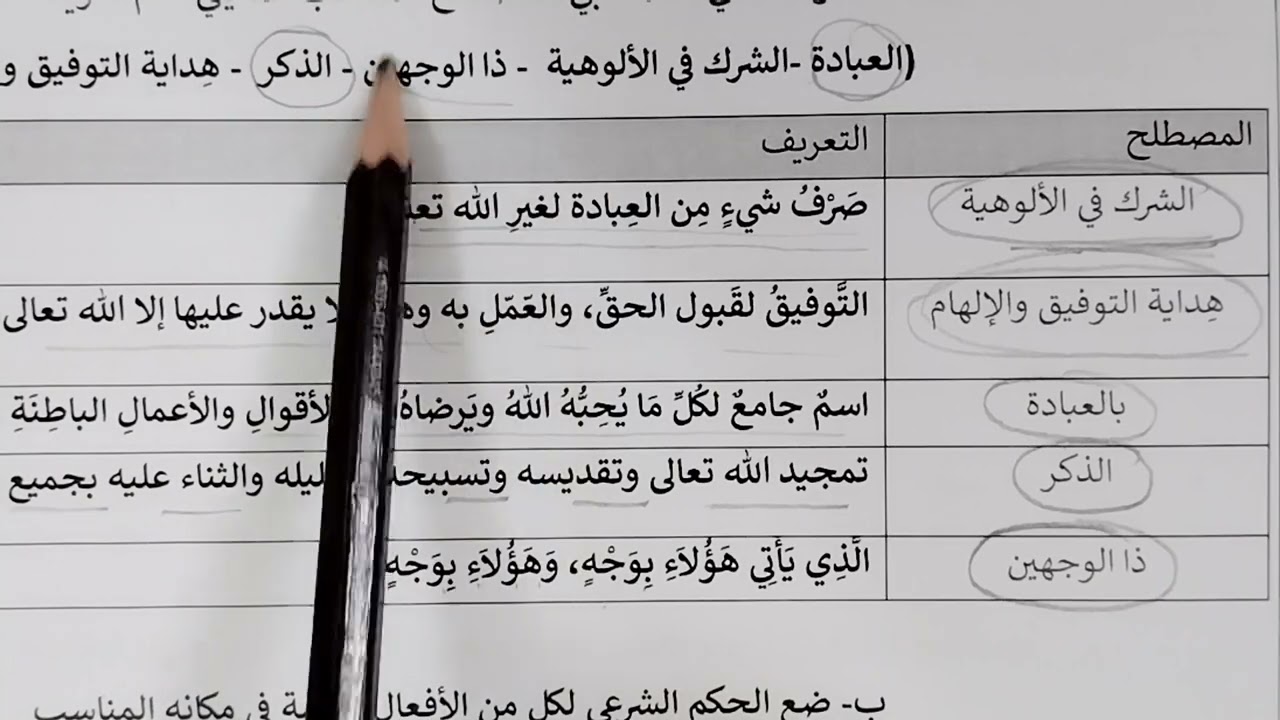 (العبادة -الشرك في الألوهية - ذا الوجهين - الذكر - هِداية التوفيق و
المصطلح التعريف
الشرك في الألوهية صَرْفُ شيءٍ مِن العِبادة لغيرِ الله
هِداية التوفيق والإلهام التَّوفيقُ لقَبول الحقِّ، والعَمَلِ به يقدر عليها إلا الله تعالى
بالعبادة اسمٌ جامعٌ لكُلِّ مَا يُحِبُّهُ اللهُ ويَرضاهُ الأقوالِ والأعمالِ الباطِنَةِ
الذكر تمجيد الله تعالى وتقديسه وتسبيحه والثناء عليه بجميع
ذا الوجهين الَّذِي يَأَتِي هَؤُلاَءِ بِوَجْهٍ، وَهَؤُلاَءِ بِوَجْهٍ
ب- ضع الحكم الشرعي لكل من الأفعال في مكانه المناسب